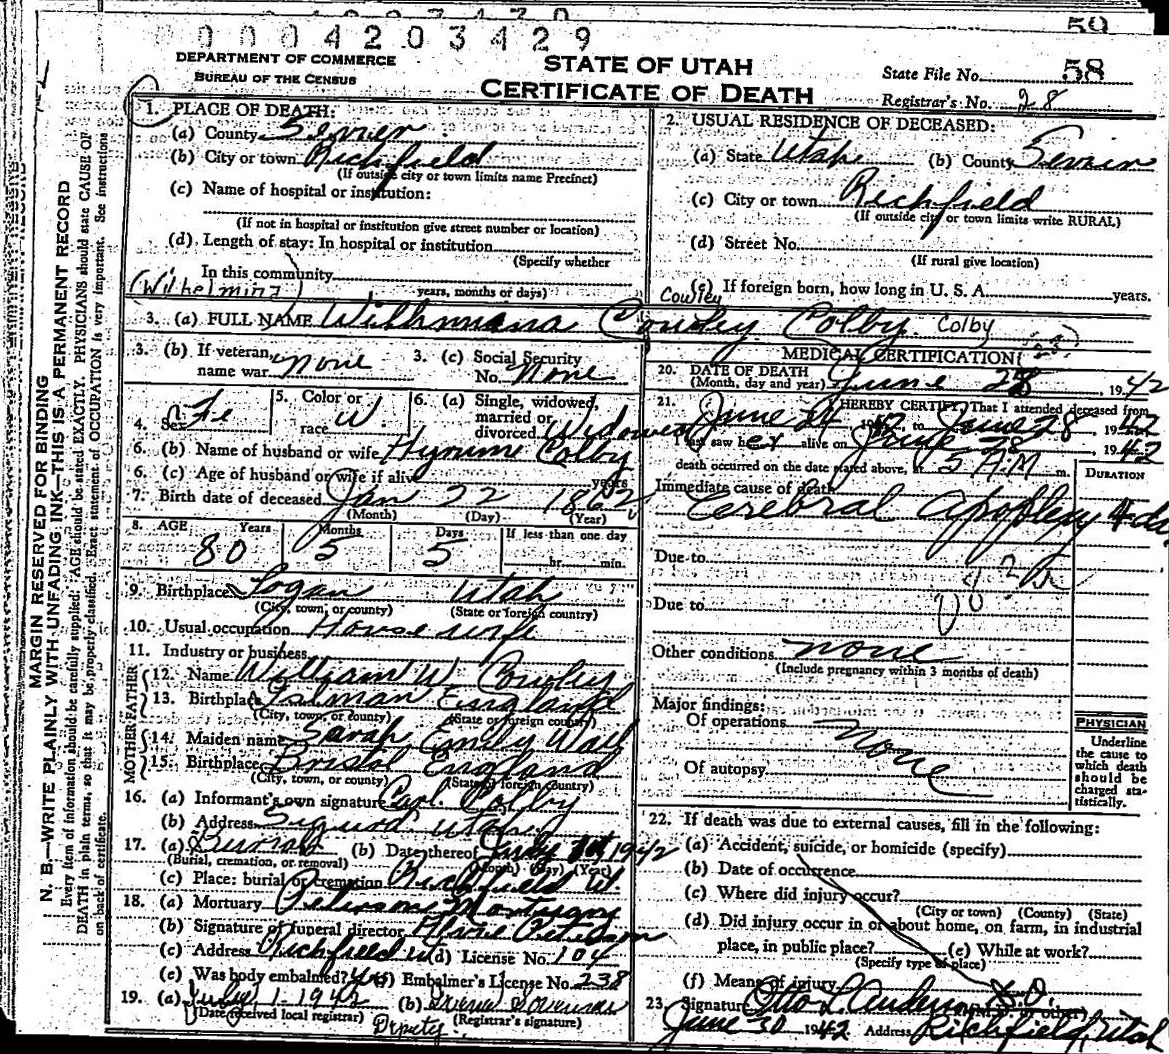 59
0 0 0 4 2 0 3 4 2 9
DEPARTMENT OF COMMERCE
BUREAU OF THE CENSUS
STATE OF UTAH
CERTIFICATE OF DEATH
State File No. 58
Registrar's No. 28
MARGIN RESERVED FOR BINDING
N. B.—WRITE PLAINLY WITH UNFADING INK—THIS IS A PERMANENT RECORD
Every item of information should be carefully supplied. AGE should be stated EXACTLY. PHYSICIANS should state CAUSE OF
DEATH in plain terms, so that it may be properly classified. Exact statement of OCCUPATION is very important. See instructions
on back of certificate.
1. PLACE OF DEATH:
(a) County Sevier
(b) City or town Richfield
(If outside city or town limits name Precinct)
(c) Name of hospital or institution:
(If not in hospital or institution give street number or location)
(d) Length of stay: In hospital or institution
(Specify whether
In this community
years, months or days)
(Wilhelmina)
2. USUAL RESIDENCE OF DECEASED:
(a) State Utah (b) County Sevier
(c) City or town Richfield
(If outside city or town limits write RURAL)
(d) Street No.
(If rural give location)
(e) If foreign born, how long in U. S. A. years.
Cowley
3. (a) FULL NAME Wilhmiana Cowley Colby Colby
3. (b) If veteran, name war none 3. (c) Social Security No. none
4. Sex Fe 5. Color or race W 6. (a) Single, widowed, married or divorced Widowed
6. (b) Name of husband or wife Hyrume Colby
6. (c) Age of husband or wife if alive years
7. Birth date of deceased Jan 22 1862
(Month) (Day) (Year)
8. AGE Years Months Days If less than one day
80 5 5 hr. min.
9. Birthplace Logan Utah
(City, town, or county) (State or foreign country)
10. Usual occupation House wife
11. Industry or business
FATHER
12. Name William W Cowley
13. Birthplace Isleman England
(City, town, or county) (State or foreign country)
MOTHER
14. Maiden name Sarah Emily Wall
15. Birthplace Bristol England
(City, town, or county) (State or foreign country)
16. (a) Informant's own signature Carl Colby
(b) Address Sigurd Utah
17. (a) Burial (b) Date thereof July 1st 1942
(Burial, cremation, or removal) (Month) (Day) (Year)
(c) Place: burial or cremation Richfield Ut.
18. (a) Mortuary Petersons Mortuary
(b) Signature of funeral director Peterson
(c) Address Richfield Ut (d) License No. 104
(e) Was body embalmed? Yes (f) Embalmer's License No. 238
19. (a) July 1 - 1942 (b) Sorensen
(Date received local registrar) (Registrar's signature)
Deputy
MEDICAL CERTIFICATION
20. DATE OF DEATH
(Month, day and year) June 28, 1942
21. I HEREBY CERTIFY, That I attended deceased from
June 24 1942 to June 28, 1942
I last saw her alive on June 28, 1942
death occurred on the date stated above, at 5 A.M. m.
DURATION
Immediate cause of death
Cerebral Apoplexy 4 ds.
Due to
Due to
Other conditions none
(Include pregnancy within 3 months of death)
Major findings:
Of operations none
Of autopsy
PHYSICIAN
Underline
the cause to
which death
should be
charged sta-
tistically.
22. If death was due to external causes, fill in the following:
(a) Accident, suicide, or homicide (specify)
(b) Date of occurrence
(c) Where did injury occur?
(City or town) (County) (State)
(d) Did injury occur in or about home, on farm, in industrial
place, in public place? (e) While at work?
(Specify type of place)
(f) Means of injury
23. Signature Otto L. Anderson D.O.
June 30 1942 Address Richfield, Utah